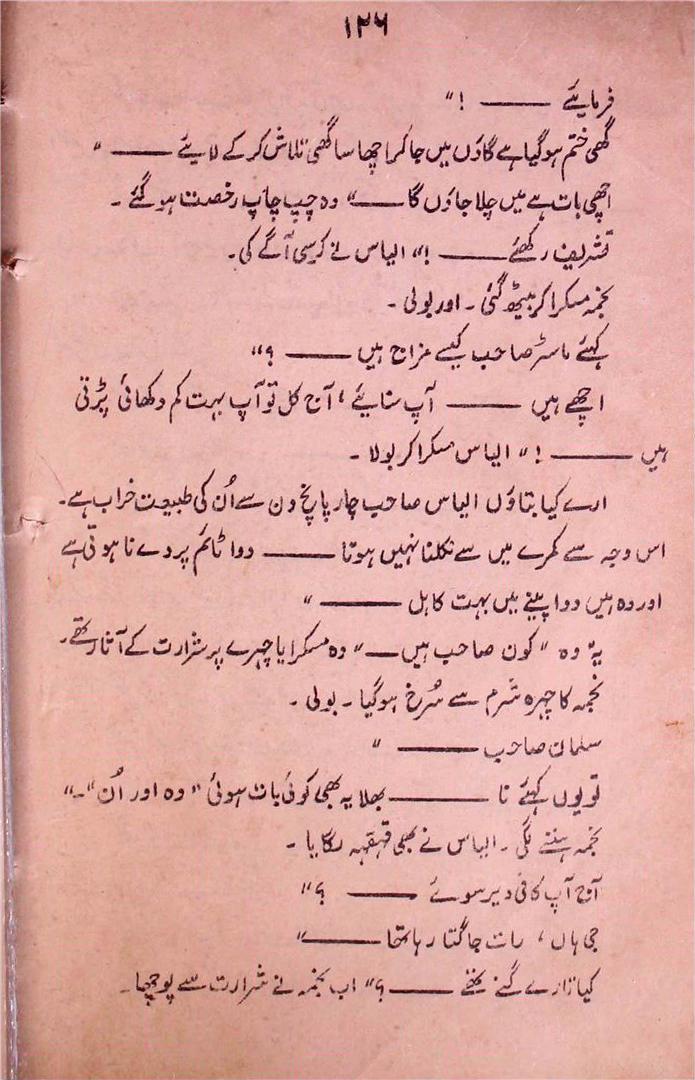 ۱۲۶
فرمایئے ——— !"
گھی ختم ہوگیا ہے گاؤں میں جا کر اچھا سا گھی تلاش کر کے لایئے ——— "
اچھی بات ہے میں چلا جاؤں گا ——— " وہ چپ چاپ رخصت ہو گئے ۔
تشریف رکھئے ——— !" الیاس نے کرسی آگے کی۔
نجمہ مسکرا کر بیٹھ گئی ۔ اور بولی ۔
کہئے ماسٹر صاحب کیسے مزاج ہیں ——— ؟"
اچھے ہیں ——— آپ سنایئے ، آج کل تو آپ بہت کم دکھائی پڑتی
ہیں ——— !" الیاس مسکرا کر بولا ۔
ارے کیا بتاؤں الیاس صاحب چار پانچ دن سے اُن کی طبیعت خراب ہے۔
اس وجہ سے کمرے میں سے نکلنا نہیں ہوتا ——— دوا ٹائم پر دے نا ہوتی ہے
اور وہ ہیں دوا پینے میں بہت کاہل ——— "
یہ وہ " کون صاحب ہیں ——— " وہ مسکرایا چہرے پر شرارت کے آثار تھے۔
نجمہ کا چہرہ شرم سے سُرخ ہوگیا ۔ بولی ۔
سلمان صاحب ——— "
تو یوں کہئے نا ——— بھلا یہ بھی کوئی بات ہوئی " وہ اور اُن "۔"
نجمہ ہنسنے لگی ۔ الیاس نے بھی قہقہہ لگایا ۔
آج آپ کافی دیر سوئے ——— ؟"
جی ہاں ، رات جاگتا رہا تھا ——— "
کیا تارے گنے تھے ——— ؟" اب نجمہ نے شرارت سے پوچھا۔